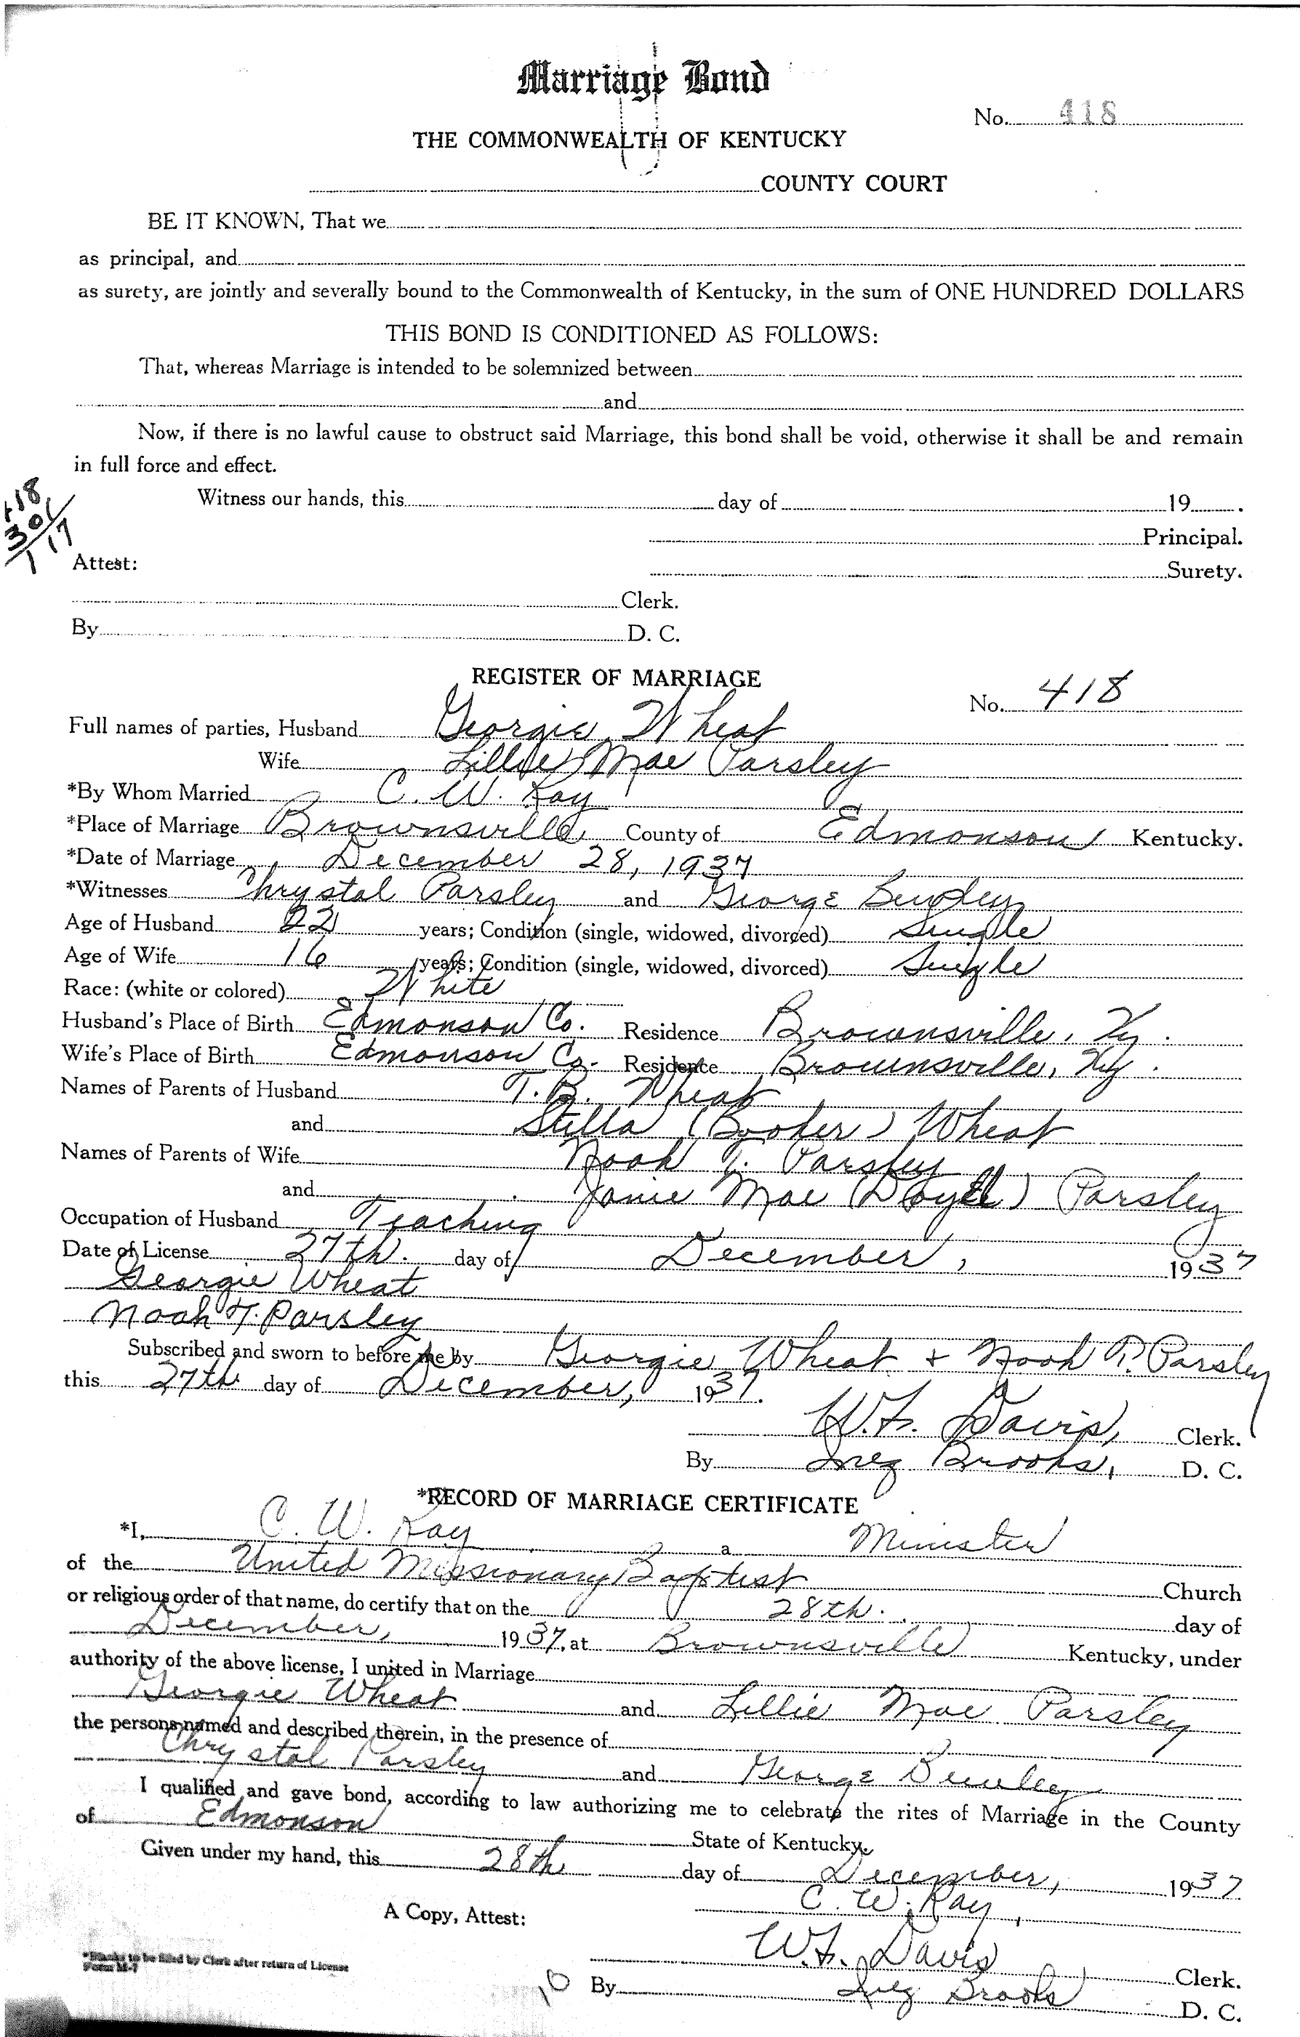 Marriage Bond
No. 418
THE COMMONWEALTH OF KENTUCKY
COUNTY COURT
BE IT KNOWN, That we
as principal, and
as surety, are jointly and severally bound to the Commonwealth of Kentucky, in the sum of ONE HUNDRED DOLLARS
THIS BOND IS CONDITIONED AS FOLLOWS:
That, whereas Marriage is intended to be solemnized between
and
Now, if there is no lawful cause to obstruct said Marriage, this bond shall be void, otherwise it shall be and remain
in full force and effect.
Witness our hands, this day of 19 .
418
301
117
Principal.
Attest:
Surety.
Clerk.
By D. C.
REGISTER OF MARRIAGE
No. 418
Full names of parties, Husband Georgie Wheat
Wife Lillie Mae Parsley
*By Whom Married C. W. Ray
*Place of Marriage Brownsville County of Edmonson Kentucky.
*Date of Marriage December 28, 1937
*Witnesses Chrystal Parsley and George Bewley
Age of Husband 22 years; Condition (single, widowed, divorced) Single
Age of Wife 16 years; Condition (single, widowed, divorced) Single
Race: (white or colored) White
Husband's Place of Birth Edmonson Co. Residence Brownsville, Ky.
Wife's Place of Birth Edmonson Co. Residence Brownsville, Ky.
Names of Parents of Husband T. B. Wheat
and Stella (Booker) Wheat
Names of Parents of Wife Noah T. Parsley
and Janie Mae (Doyel) Parsley
Occupation of Husband Teaching
Date of License 27th. day of December, 1937
Georgie Wheat
Noah T. Parsley
Subscribed and sworn to before me by Georgie Wheat + Noah T. Parsley
this 27th day of December, 1937.
W. F. Davis, Clerk.
By Inez Brooks, D. C.
*RECORD OF MARRIAGE CERTIFICATE
*I, C. W. Ray a Minister
of the United Missionary Baptist Church
or religious order of that name, do certify that on the 28th. day of
December, 1937, at Brownsville Kentucky, under
authority of the above license, I united in Marriage
Georgie Wheat and Lillie Mae Parsley
the persons named and described therein, in the presence of
Chrystal Parsley and George Bewley
I qualified and gave bond, according to law authorizing me to celebrate the rites of Marriage in the County
of Edmonson State of Kentucky.
Given under my hand, this 28th day of December, 1937
C. W. Ray,
A Copy, Attest:
W. F. Davis Clerk.
*Blanks to be filled by Clerk after return of License
Form M-7
10
By Inez Brooks D. C.